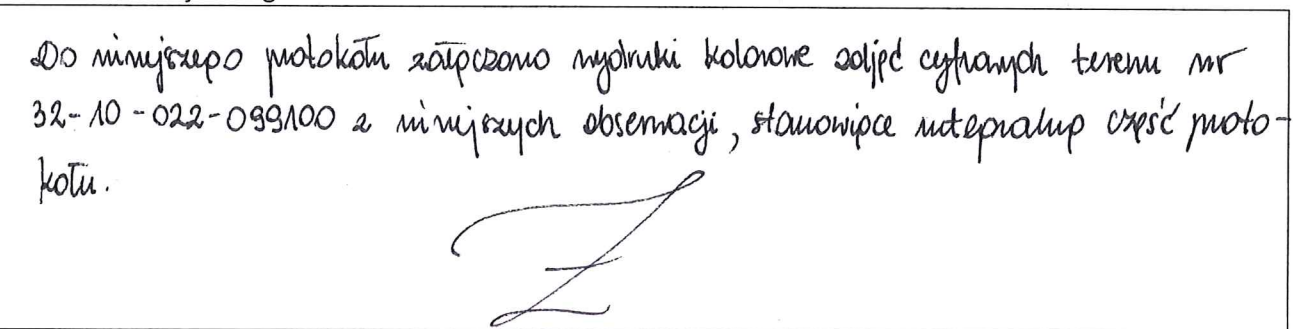 Do niniejszego protokołu załączono wydruki kolorowe zdjęć cyfrowych terenu nr
32-10-022-099100 z niniejszych obserwacji, stanowiące integralną część proto-
kołu.